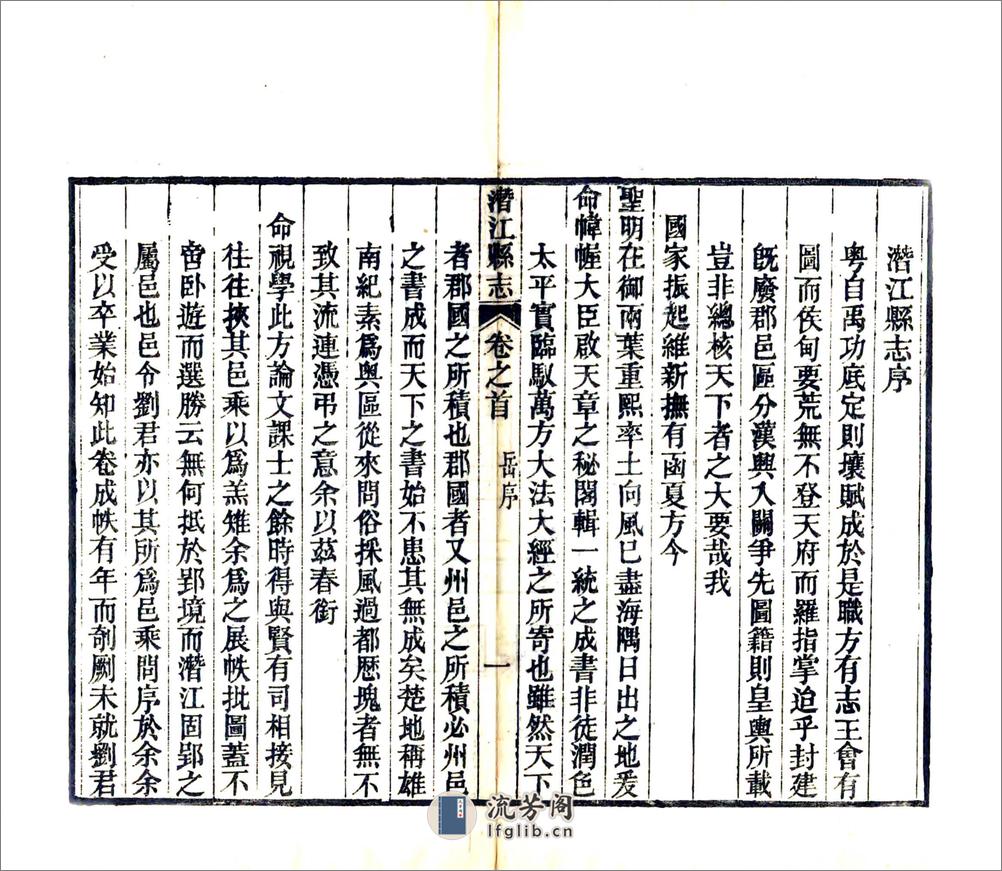 潛江縣志序
粤自禹功底定則壤賦成於是職方有志王會有
圖而侯甸要荒無不登天府而羅指掌迨乎封建
旣廢郡邑區分漢興入關爭先圖籍則皇輿所載
豈非總核天下者之大要哉我
國家振起維新撫有函夏方今
聖明在御兩葉重熙率土向風已盡海隅日出之地爰
命幃幄大臣啟天章之秘閣輯一統之成書非徒潤色
太平實臨馭萬方大法大經之所寄也雖然天下
潛江縣志 卷之首 岳序 一
者郡國之所積也郡國者又州邑之所積必州邑
之書成而天下之書始不患其無成矣楚地稱雄
南紀素爲輿區從來問俗採風過都歴塊者無不
致其流連憑弔之意余以茲春銜
命視學此方論文課士之餘時得與賢有司相接見
往往挾其邑乘以爲羔雉余爲之展帙批圖蓋不
啻卧遊而選勝云無何抵於郢境而潛江固郢之
屬邑也邑令劉君亦以其所爲邑乘問序於余余
受以卒業始知此卷成帙有年而剞劂未就劉君
流芳阁
lfglib.cn